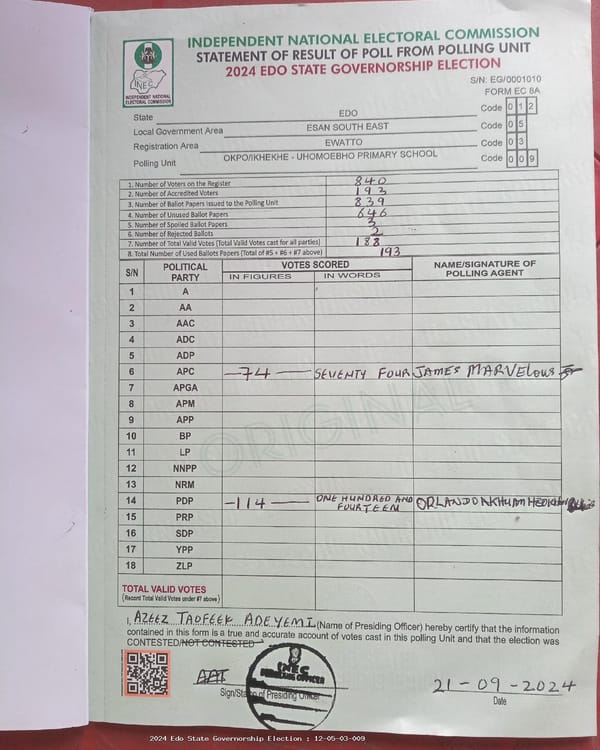 INDEPENDENT NATIONAL ELECTORAL COMMISSION
STATEMENT OF RESULT OF POLL FROM POLLING UNIT
2024 EDO STATE GOVERNORSHIP ELECTION
INEC
INDEPENDENT NATIONAL ELECTORAL COMMISSION
S/N: EG/0001010
FORM EC 8A
State EDO Code 0 1 2
Local Government Area ESAN SOUTH EAST Code 0 5
Registration Area EWATTO Code 0 3
Polling Unit OKPO/IKHEKHE - UHOMOEBHO PRIMARY SCHOOL Code 0 0 9
1. Number of Voters on the Register 840
2. Number of Accredited Voters 193
3. Number of Ballot Papers Issued to the Polling Unit 839
4. Number of Unused Ballot Papers 646
5. Number of Spoiled Ballot Papers 3
6. Number of Rejected Ballots 2
7. Number of Total Valid Votes (Total Valid Votes cast for all parties) 188
8. Total Number of Used Ballots Papers (Total of #5 + #6 + #7 above) 193
S/N POLITICAL PARTY VOTES SCORED NAME/SIGNATURE OF POLLING AGENT
IN FIGURES IN WORDS
1 A
2 AA
3 AAC
4 ADC
5 ADP
6 APC -74- SEVENTY FOUR JAMES MARVELOUS
7 APGA
8 APM
9 APP
10 BP
11 LP
12 NNPP
13 NRM
14 PDP -114- ONE HUNDRED AND FOURTEEN
15 PRP
16 SDP
17 YPP
18 ZLP
ORIGINAL
TOTAL VALID VOTES
(Record Total Valid Votes under #7 above)
I, AZEEZ TAOFEEK ADEYEMI (Name of Presiding Officer) hereby certify that the information
contained in this form is a true and accurate account of votes cast in this polling Unit and that the election was
CONTESTED/NOT CONTESTED
INEC
PRESIDING OFFICER
Sign/Stamp of Presiding Officer
21-09-2024
Date
2024 Edo State Governorship Election : 12-05-03-009